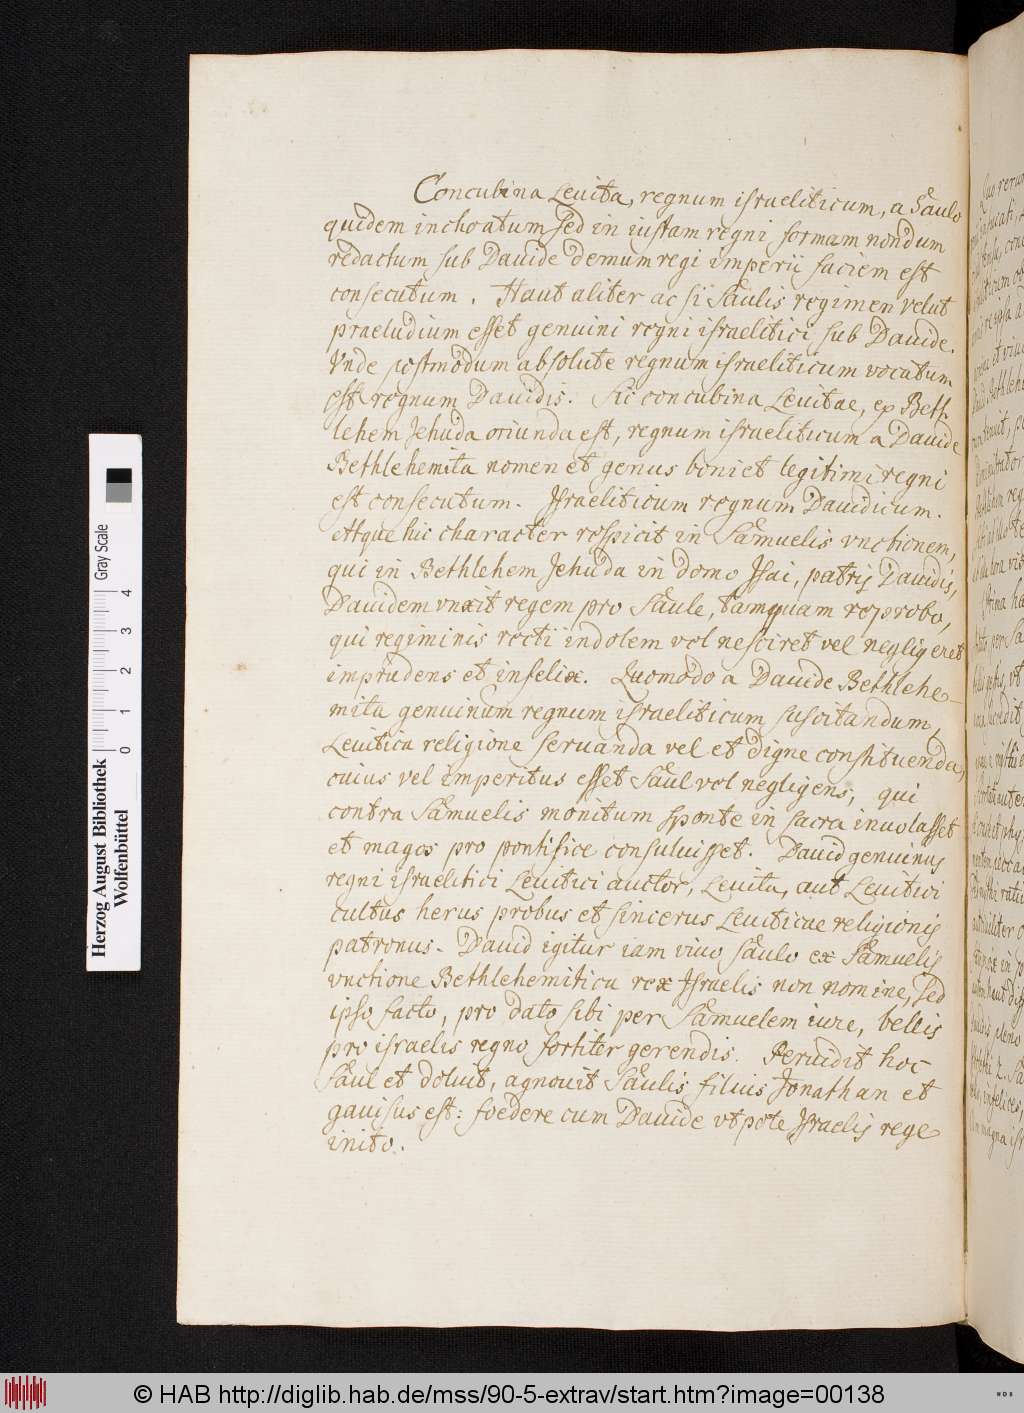 Concubina Leuita, regnum israeliticum, a Saulo
quidem inchoatum sed in iustam regni formam nondum
redactum sub Dauide demum regi imperii faciem est
consecutum. Haut aliter ac si Saulis regimen velut
praeludium esset genuini regni israelitici sub Dauide.
Vnde postmodum absolute regnum israeliticum vocatum
est regnum Dauidis. Sic concubina Leuitae, ex Beth-
lehem Jehuda oriunda est, regnum israeliticum a Dauide
Bethlehemita nomen et genus boni et legitimi regni
est consecutum. Israeliticum regnum Dauidicum.
Atque hic character respicit in Samuelis vnctionem,
qui in Bethlehem Jehuda in domo Isai, patris Dauidis,
Dauidem vnxit regem pro Saule, tamquam reprobo,
qui regiminis recti indolem vel nesciret vel negligeret
imprudens et infelix. Quomodo a Dauide Bethlehe-
mita genuinum regnum israeliticum suscitandum,
Leuitica religione seruanda vel et digne constituenda,
cuius vel imperitus esset Saul vel negligens; qui
contra Samuelis monitum sponte in sacra inuolasset
et magos pro pontifice consuluisset. Dauid genuinus
regni israelitici Leuitici auctor, Leuita, aut Leuitici
cultus herus probus et sincerus Leuiticae religionis
patronus. Dauid igitur iam viuo Saulo ex Samuelis
vnctione Bethlehemitica rex Israelis non nomine, sed
ipso facto, pro dato sibi per Samuelem iure, bellis
pro israelis regno fortiter gerendis. Peruidit hoc
Saul et doluit, agnouit Saulis filius Jonathan et
gauisus est: foedere cum Dauide vtpote Israelis rege
inito.
Herzog August Bibliothek
Wolfenbüttel
0 1 2 3 4
Gray Scale
© HAB http://diglib.hab.de/mss/90-5-extrav/start.htm?image=00138